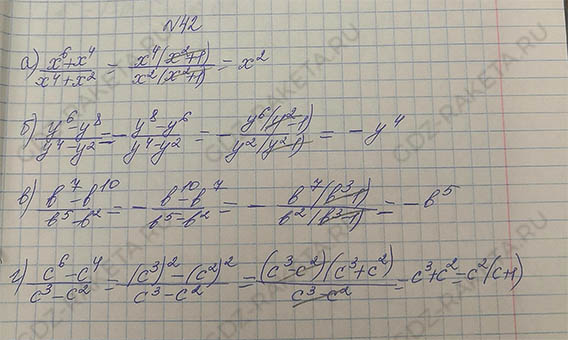 №42
а) x⁶+x⁴/x⁴+x² = x⁴(x²+1)/x²(x²+1) = x²
б) y⁶-y⁸/y⁴-y² = - y⁸-y⁶/y⁴-y² = - y⁶(y²-1)/y²(y²-1) = - y⁴
в) b⁷-b¹⁰/b⁵-b² = - b¹⁰-b⁷/b⁵-b² = - b⁷(b³-1)/b²(b³-1) = - b⁵
г) c⁶-c⁴/c³-c² = (c³)²-(c²)²/c³-c² = (c³-c²)(c³+c²)/c³-c² = c³+c² = c²(c+1)
GDZ-RAKETA.RU